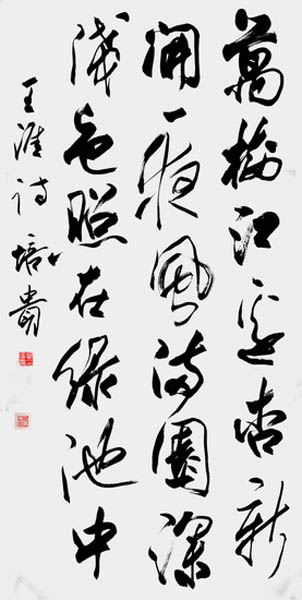 萬樹江邊杏新
開一夜風滿園深
淺色照在綠池中
王涯詩培貴